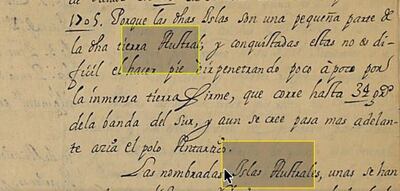 1705. Porque las dhas Islas son una pequeña parte de
la dha tierra Austral, y conquistadas estas no es di-
ficil el hacer pie e ir penetrando poco à poco por
la inmensa tierra firme, que corre hasta 34 grs
dela banda del Sur, y aun se cree pasa mas adelan-
te azia el polo Antartico.
Las nombradas Islas Australes, unas se han